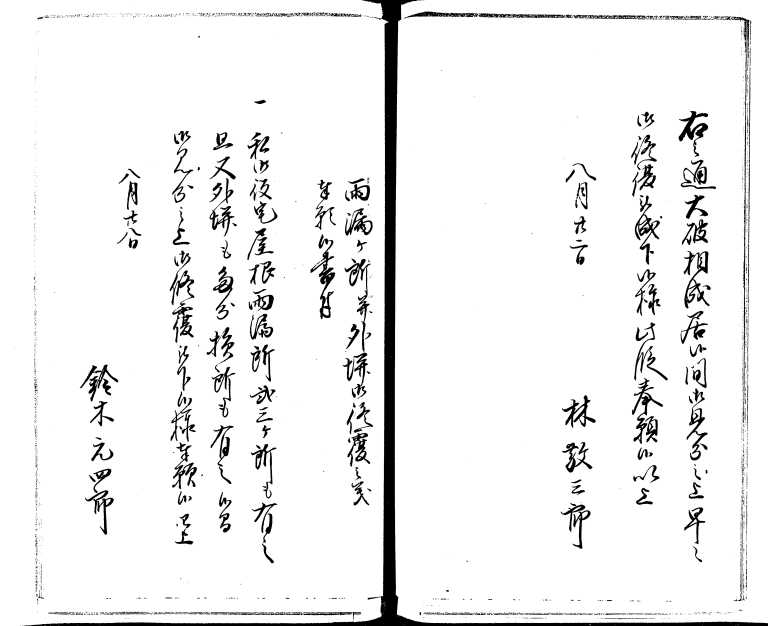 右之通大破相成居候間御見分之上早々
御修復被成下候様此段奉願候以上
八月廿二日
林敬三郎
雨漏ヶ所并外塀御修覆之義
奉願候書付
一 私御役宅屋根雨漏所弐三ヶ所も有之
且又外塀も多分損所も有之候間
御見分之上御修覆被下候様奉願候以上
八月廿八日
鈴木元四郎